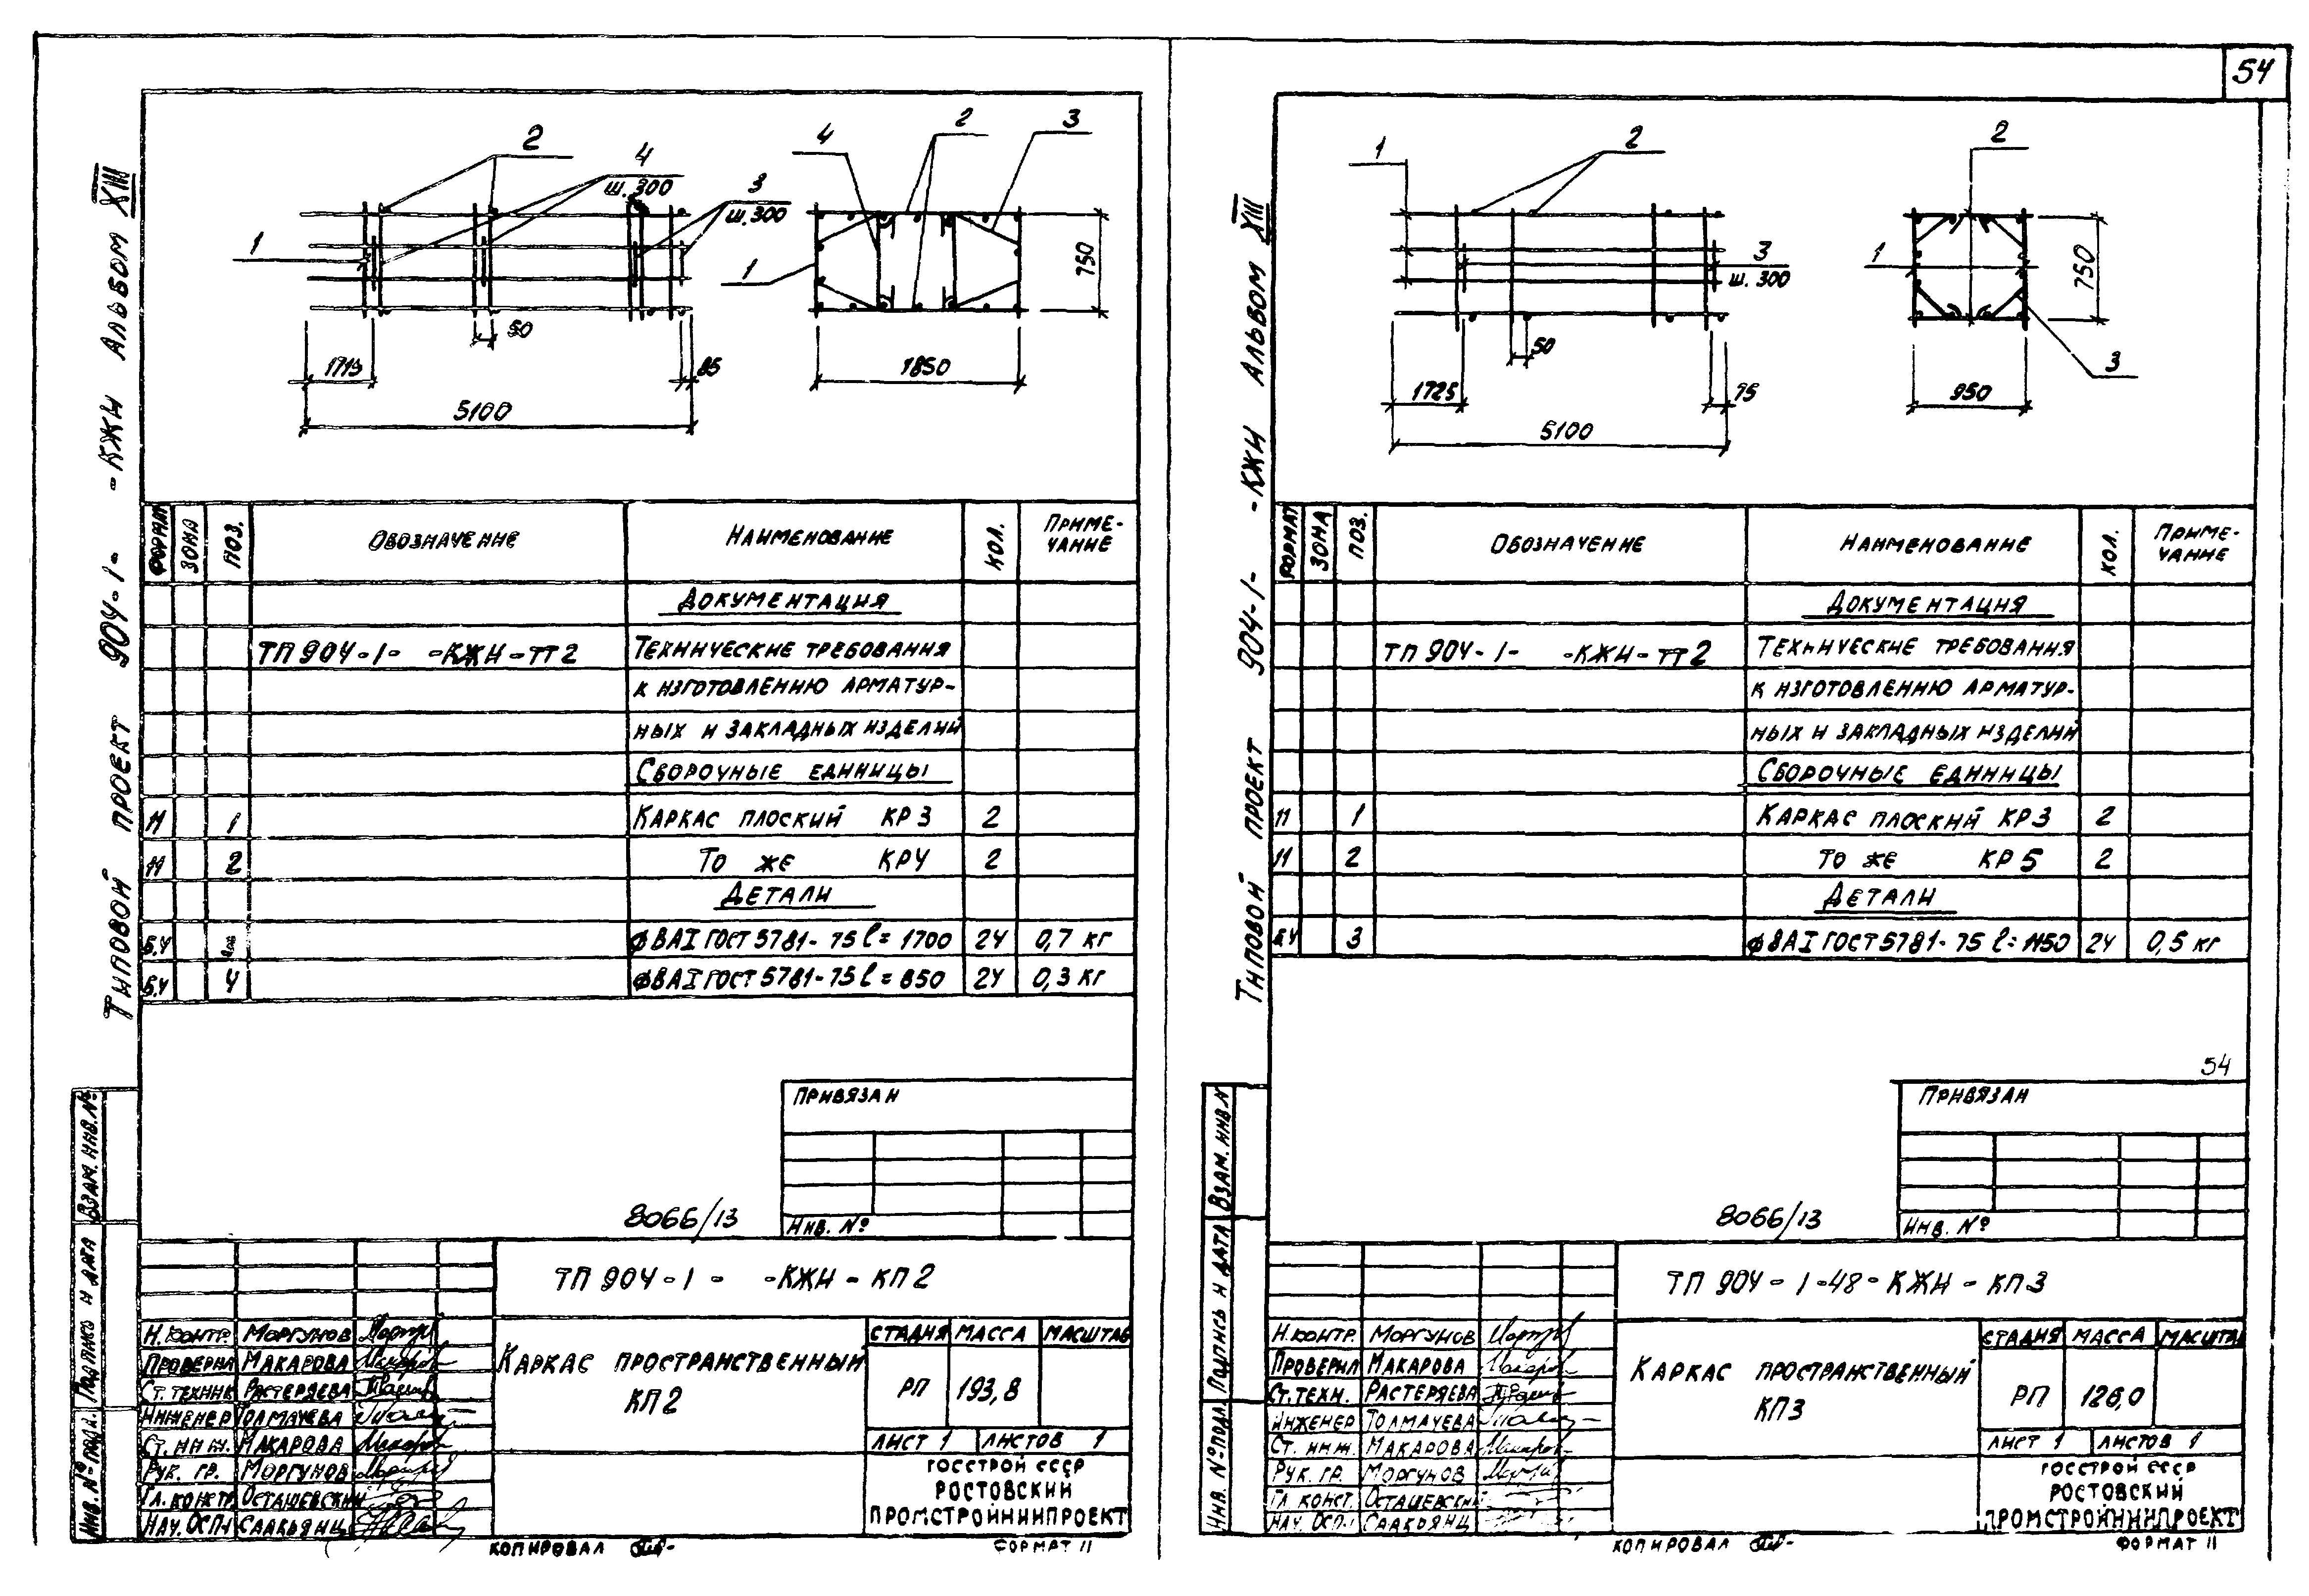 54
Типовой проект 904-1- -КЖИ Альбом XIII
2
4
ш. 300
3
ш. 300
1
50
1715
85
5100
4
2
3
1
750
1850
Формат
Зона
Поз.
Обозначение
Наименование
Кол.
Приме-
чание
Документация
ТП 904-1- -КЖИ-ТТ2
Технические требования
к изготовлению арматур-
ных и закладных изделий
Сборочные единицы
11 1 Каркас плоский КР3 2
11 2 То же КР4 2
Детали
Б.Ч ф8АI ГОСТ 5781-75 l=1700 24 0,7 кг
Б.Ч 4 ф8АI ГОСТ 5781-75 l=850 24 0,3 кг
Привязан
Инв. №
8066/13
Взам. инв. №
Подпись и дата
Инв. № подл.
ТП 904-1- -КЖИ-КП2
Н.контр. Моргунов
Проверил Макарова
Ст. техник Растеряева
Инженер Толмачева
Ст. инж. Макарова
Рук. гр. Моргунов
Гл. констр Осташевский
Нач. ОСП-1 Саакьянц
Каркас пространственный
КП2
Стадия Масса Масштаб
РП 193,8
Лист 1 Листов 1
Госстрой СССР
Ростовский
Промстройниипроект
Копировал
Формат 11
Типовой проект 904-1- -КЖИ Альбом XIII
1
2
3
ш. 300
50
1725
75
5100
2
1
750
3
950
Формат
Зона
Поз.
Обозначение
Наименование
Кол.
Приме-
чание
Документация
ТП 904-1- -КЖИ-ТТ2
Технические требования
к изготовлению арматур-
ных и закладных изделий
Сборочные единицы
11 1 Каркас плоский КР3 2
11 2 То же КР5 2
Детали
Б.Ч 3 ф8АI ГОСТ 5781-75 l=1150 24 0,5 кг
54
Привязан
Инв. №
8066/13
Взам. инв. №
Подпись и дата
Инв. № подл.
ТП 904-1-48-КЖИ-КП3
Н.контр. Моргунов
Проверил Макарова
Ст. техн. Растеряева
Инженер Толмачева
Ст. инж. Макарова
Рук. гр. Моргунов
Гл. конст. Осташевский
Нач. ОСП-1 Саакьянц
Каркас пространственный
КП3
Стадия Масса Масштаб
РП 126,0
Лист 1 Листов 1
Госстрой СССР
Ростовский
Промстройниипроект
Копировал
Формат 11